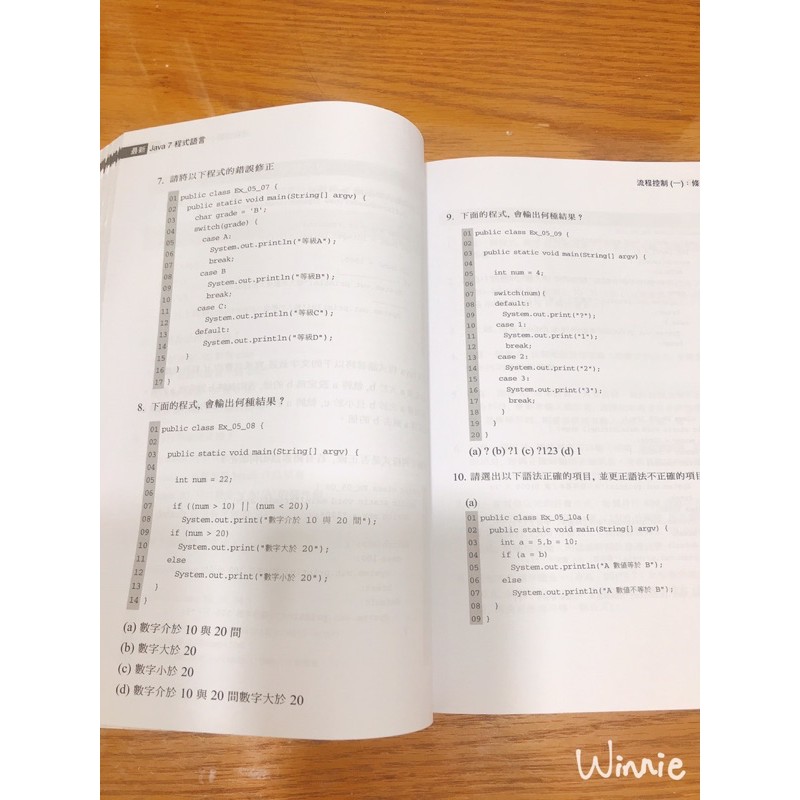 最新 Java 7 程式語言
7. 請將以下程式的錯誤修正
01 public class Ex_05_07 {
02 public static void main(String[] argv) {
03 char grade = 'B';
04 switch(grade) {
05 case A:
06 System.out.println("等級A");
07 break;
08 case B
09 System.out.println("等級B");
10 break;
11 case C:
12 System.out.println("等級C");
13 default:
14 System.out.println("等級D");
15 }
16 }
17 }
8. 下面的程式, 會輸出何種結果?
01 public class Ex_05_08 {
02
03 public static void main(String[] argv) {
04
05 int num = 22;
06
07 if ((num > 10) || (num < 20))
08 System.out.print("數字介於 10 與 20 間");
09 if (num > 20)
10 System.out.print("數字大於 20");
11 else
12 System.out.print("數字小於 20");
13 }
14 }
(a) 數字介於 10 與 20 間
(b) 數字大於 20
(c) 數字小於 20
(d) 數字介於 10 與 20 間數字大於 20
流程控制 (一) : 條
9. 下面的程式, 會輸出何種結果?
01 public class Ex_05_09 {
02
03 public static void main(String[] argv) {
04
05 int num = 4;
06
07 switch(num){
08 default:
09 System.out.print("?");
10 case 1:
11 System.out.print("1");
12 break;
13 case 2:
14 System.out.print("2");
15 case 3:
16 System.out.print("3");
17 break;
18 }
19 }
20 }
(a) ? (b) ?1 (c) ?123 (d) 1
10. 請選出以下語法正確的項目, 並更正語法不正確的項目
(a)
01 public class Ex_05_10a {
02 public static void main(String[] argv) {
03 int a = 5,b = 10;
04 if (a = b)
05 System.out.println("A 數值等於 B");
06 else
07 System.out.println("A 數值不等於 B");
08 }
09 }
Winnie